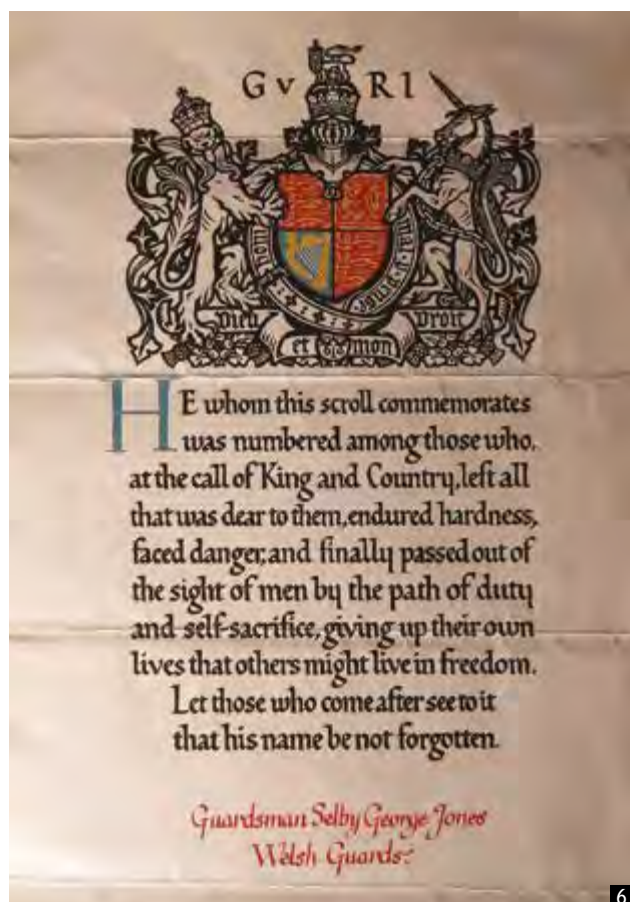 G V RI
Dieu Droit
et mon
HE whom this scroll commemorates
was numbered among those who,
at the call of King and Country, left all
that was dear to them, endured hardness,
faced danger, and finally passed out of
the sight of men by the path of duty
and self-sacrifice, giving up their own
lives that others might live in freedom.
Let those who come after see to it
that his name be not forgotten.
Guardsman Selby George Jones
Welsh Guards
6